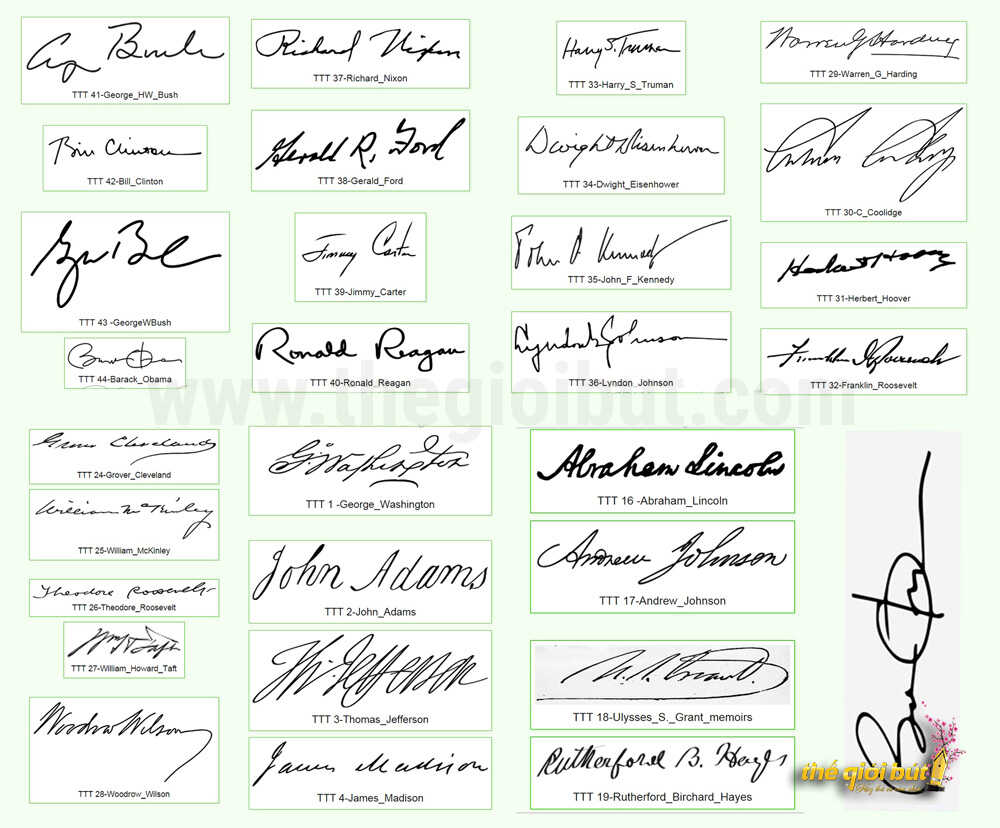 G Bush
TTT 41-George_HW_Bush
Richard Nixon
TTT 37-Richard_Nixon
Harry S. Truman
TTT 33-Harry_S_Truman
Warren G Harding
TTT 29-Warren_G_Harding
Bill Clinton
TTT 42-Bill_Clinton
Gerald R. Ford
TTT 38-Gerald_Ford
Dwight D Eisenhower
TTT 34-Dwight_Eisenhower
Calvin Coolidge
TTT 30-C_Coolidge
TTT 43 -GeorgeWBush
Jimmy Carter
TTT 39-Jimmy_Carter
John F Kennedy
TTT 35-John_F_Kennedy
Herbert Hoover
TTT 31-Herbert_Hoover
TTT 44-Barack_Obama
Ronald Reagan
TTT 40-Ronald_Reagan
Lyndon B Johnson
TTT 36-Lyndon_Johnson
Franklin D Roosevelt
TTT 32-Franklin_Roosevelt
www.thegioibut.com
Grover Cleveland
TTT 24-Grover_Cleveland
William McKinley
TTT 25-William_McKinley
Theodore Roosevelt
TTT 26-Theodore_Roosevelt
Wm H Taft
TTT 27-William_Howard_Taft
Woodrow Wilson
TTT 28-Woodrow_Wilson
G. Washington
TTT 1 -George_Washington
John Adams
TTT 2-John_Adams
Th. Jefferson
TTT 3-Thomas_Jefferson
James Madison
TTT 4-James_Madison
Abraham Lincoln
TTT 16 -Abraham_Lincoln
Andrew Johnson
TTT 17-Andrew_Johnson
U. S. Grant.
TTT 18-Ulysses_S._Grant_memoirs
Rutherford B. Hayes
TTT 19-Rutherford_Birchard_Hayes
thế giới bút